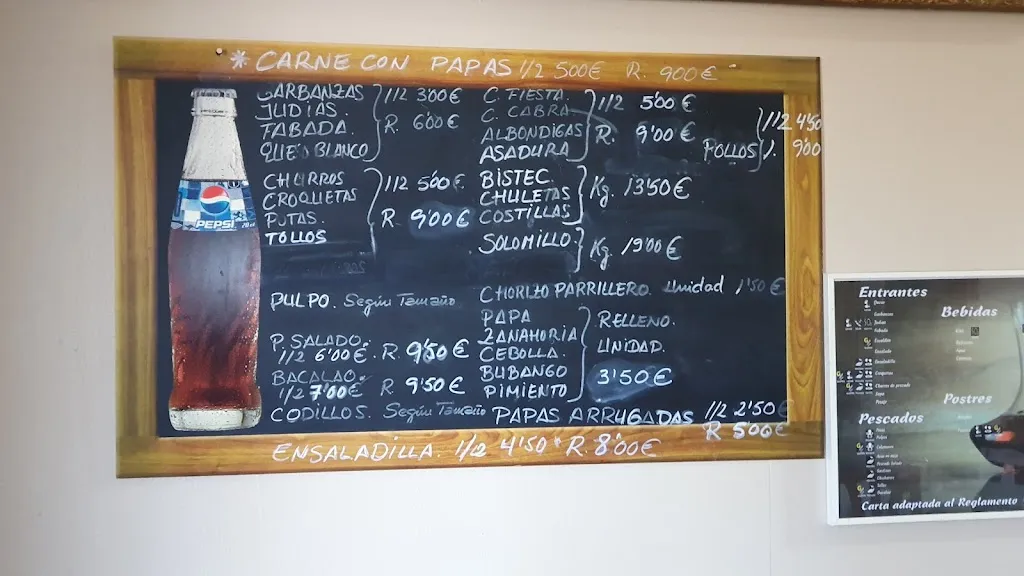 * CARNE CON PAPAS 1/2 500€ R. 900€
GARBANZAS
JUDIAS
FABADA
QUESO BLANCO
1/2 3'00€
R. 6'00€
CHURROS
CROQUETAS
PUTAS.
TOLLOS
1/2 5'00€
R. 9'00€
PULPO. Según Tamaño
P. SALADO.
1/2 6'00€. R. 9'50€
BACALAO.
1/2 7'00€ R. 9'50€
CODILLOS. Según Tamaño
C. FIESTA.
C. CABRA
ALBONDIGAS
ASADURA
1/2 5'00€
R. 9'00€
POLLOS
1/2 4'50
1. 9'00
BISTEC.
CHULETAS
COSTILLAS
Kg. 13'50€
SOLOMILLO.
Kg. 19'00€
CHORIZO PARRILLERO. Unidad 1'50€
PAPA
ZANAHORIA
CEBOLLA.
BUBANGO
PIMIENTO
RELLENO.
UNIDAD.
3'50€
PAPAS ARRUGADAS 1/2 2'50€
R 500€
ENSALADILLA. 1/2 4'50* R. 8'00€
PEPSI
Entrantes
Bebidas
Postres
Pescados
Carta adaptada al Reglamento